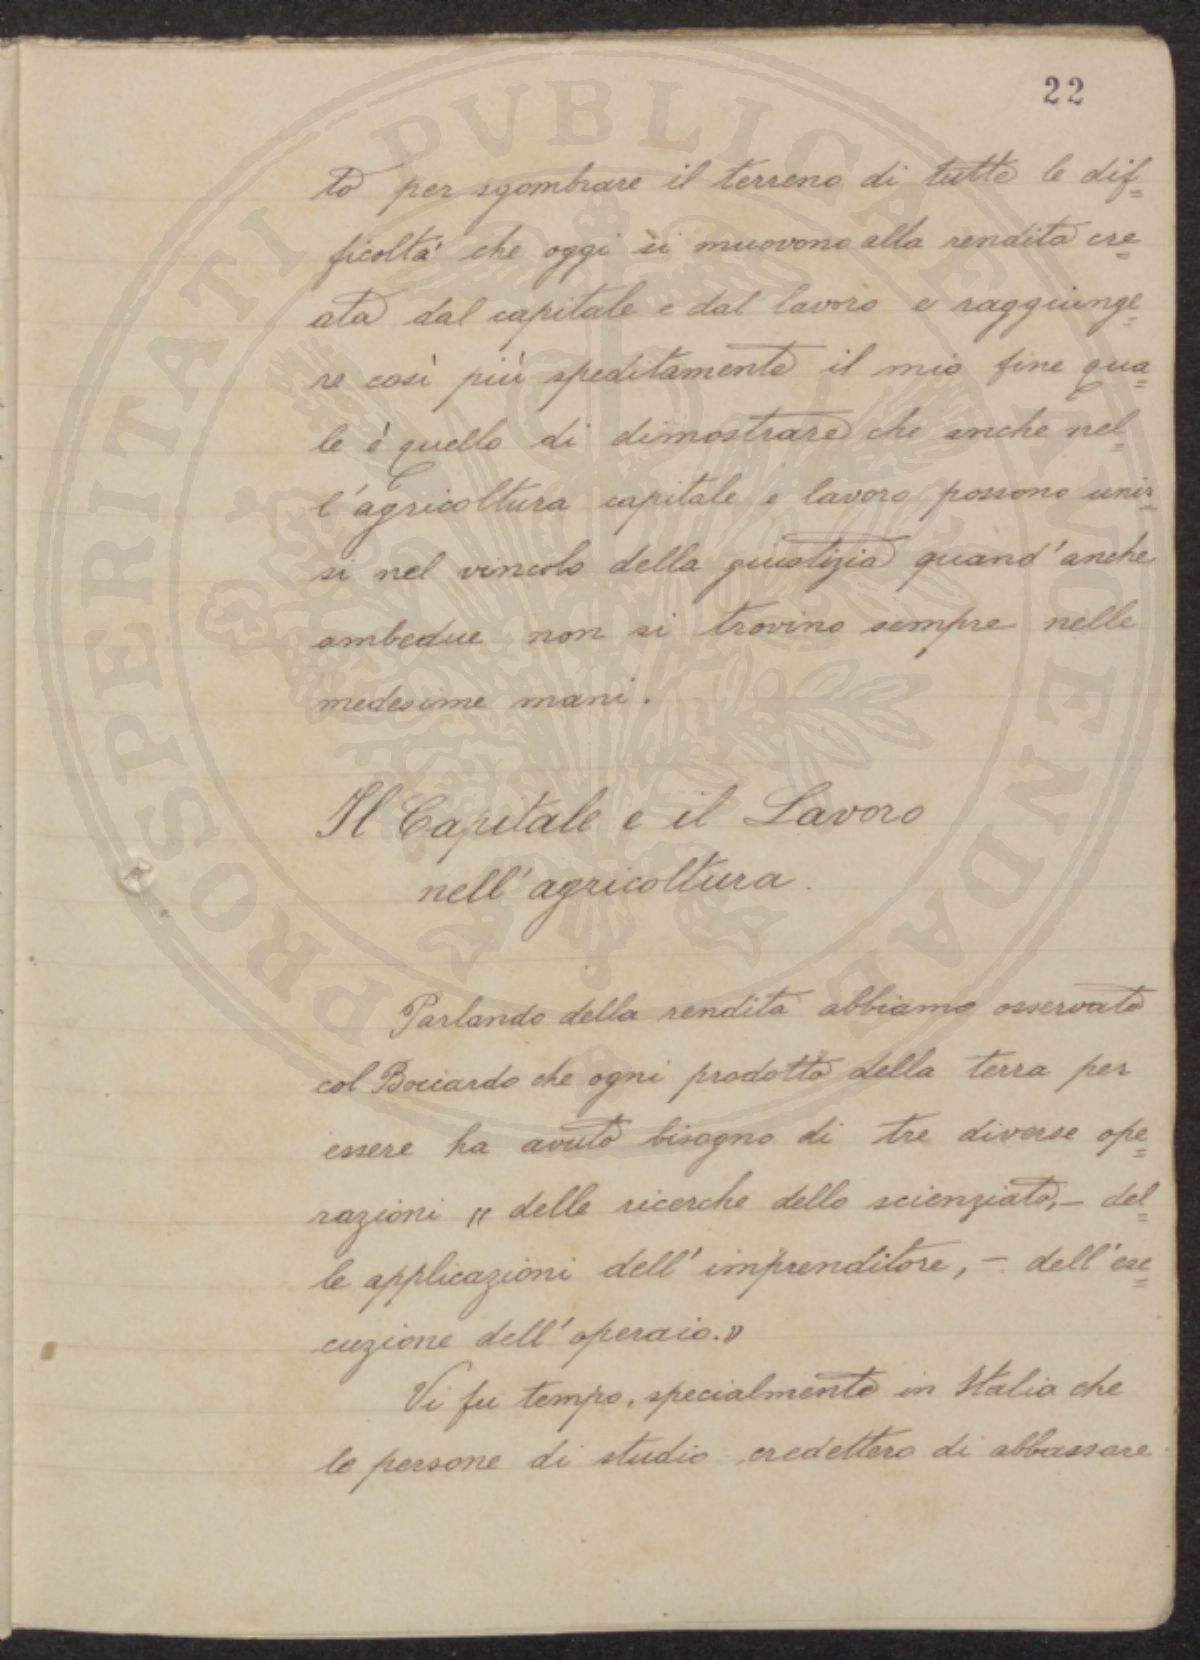 22
to per sgombrare il terreno di tutte le dif=
ficoltà che oggi si muovono alla rendita cre=
ata dal capitale e dal lavoro e raggiunge=
re così più speditamente il mio fine qua=
le è quello di dimostrare che anche nel=
l'agricoltura capitale e lavoro possono unir=
si nel vincolo della giustizia quand'anche
ambedue non si trovino sempre nelle
medesime mani.
Il Capitale e il Lavoro
nell'agricoltura.
Parlando della rendita abbiamo osservato
col Bocardo che ogni prodotto della terra per
essere ha avuto bisogno di tre diverse ope=
razioni „ delle ricerche dello scienziato, – del=
le applicazioni dell'imprenditore, – dell'ese=
cuzione dell'operaio.»
Vi fu tempo, specialmente in Italia che
le persone di studio credettero di abbassare
PROSPERITATI PVBLICAE AVGENDAE